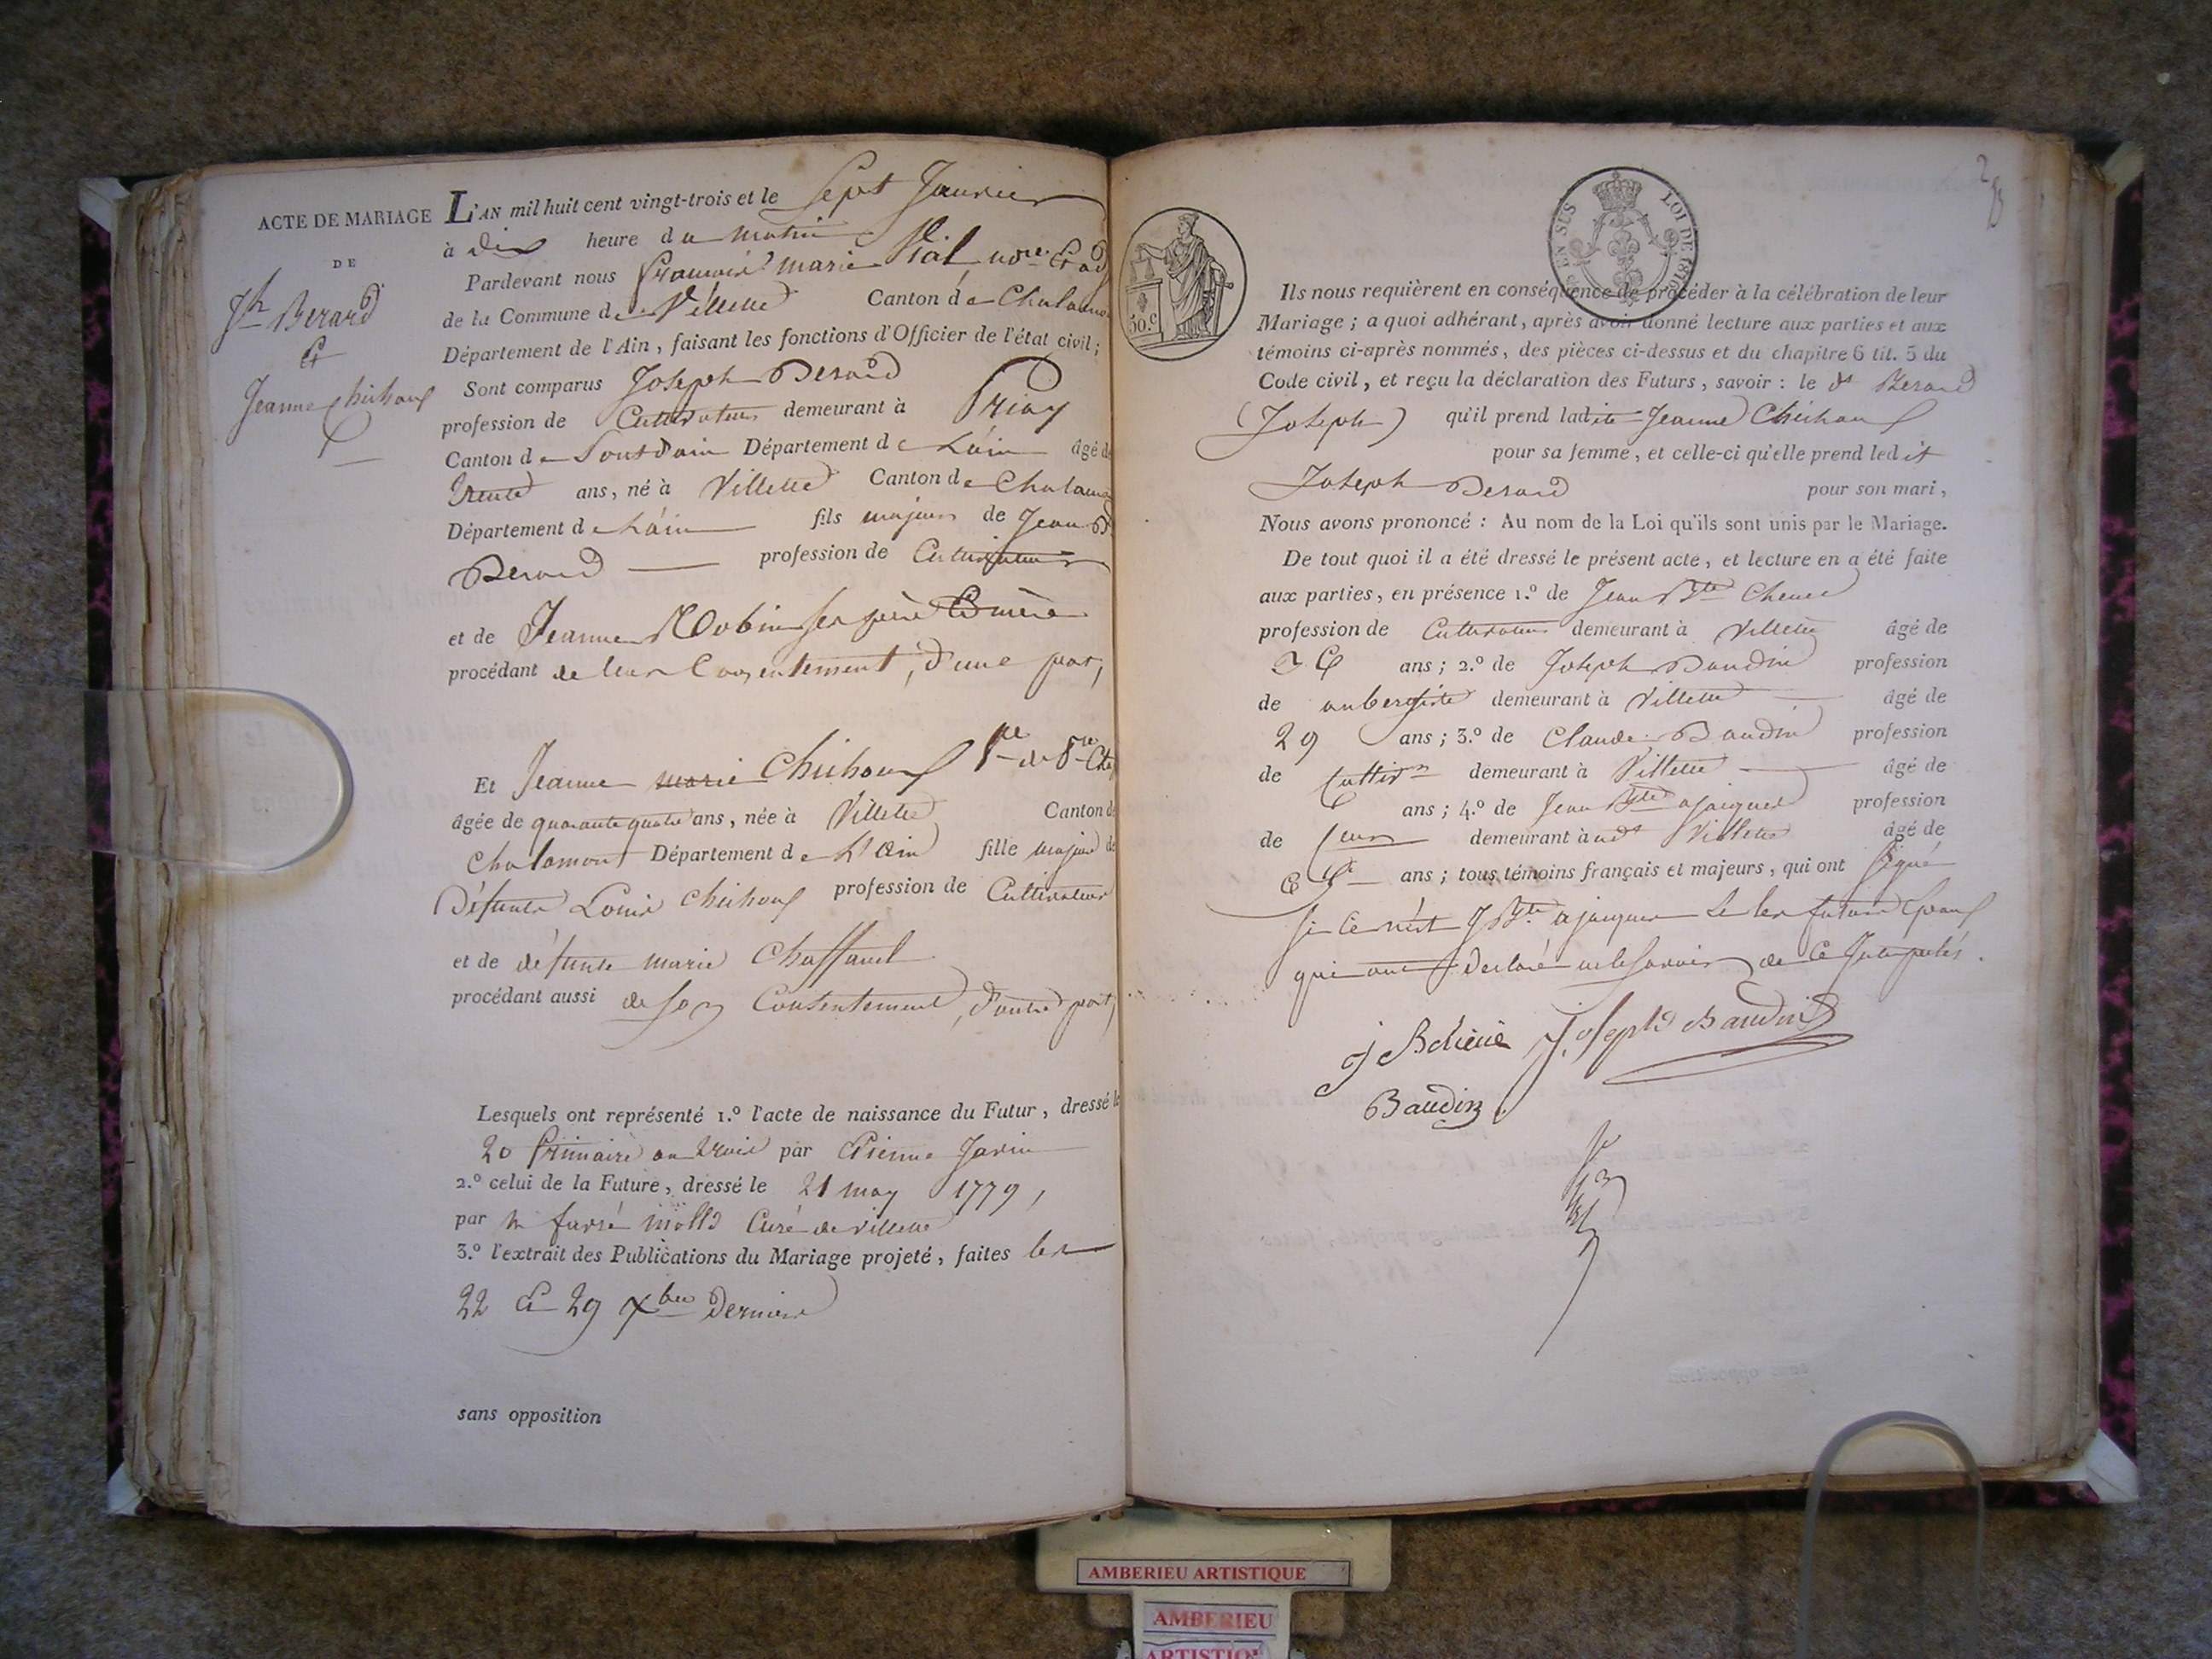 ACTE DE MARIAGE
DE
Jh Berard
Et
Jeanne Chichoux
L'AN mil huit cent vingt-trois et le Sept Janvier
à dix heure du matin
Pardevant nous François marie
de la Commune de Villette Canton de Chalamo
Département de l'Ain, faisant les fonctions d'Officier de l'état civil;
Sont comparus Joseph Berard
profession de Cultivateur demeurant à Priay
Canton de Pontdain Département de L'ain âgé d
trente ans, né à Villette Canton de Chalamo
Département de L'ain fils majeur de Jean B
Berard profession de Cultivateur
et de Jeanne Robin ses père Et mère
procédant de leur Consentement, d'une part,
Et Jeanne marie Chichoux
âgée de quarante quatre ans, née à Villette Canton d
Chalamont Département de L'ain fille majeure de
Défunts Louis Chichoux profession de Cultivateur
et de défunte marie Chaffanel
procédant aussi de son Consentement, d'autre part,
Lesquels ont représenté 1.º l'acte de naissance du Futur, dressé le
20 frimaire an trois par Etienne Javin
2.º celui de la Future, dressé le 21 may 1779,
par Curé de villette
3.º l'extrait des Publications du Mariage projeté, faites les
22 Et 29 Xbre Dernier
sans opposition
2
30.c
EN SUS LOI DE 1816
Ils nous requièrent en conséquence de procéder à la célébration de leur
Mariage; a quoi adhérant, après avoir donné lecture aux parties et aux
témoins ci-après nommés, des pièces ci-dessus et du chapitre 6 tit. 5 du
Code civil, et reçu la déclaration des Futurs, savoir : le dt Berard
(Joseph) qu'il prend ladite Jeanne Chichoux
pour sa femme, et celle-ci qu'elle prend ledit
Joseph Berard pour son mari,
Nous avons prononcé : Au nom de la Loi qu'ils sont unis par le Mariage.
De tout quoi il a été dressé le présent acte, et lecture en a été faite
aux parties, en présence 1.º de Jean Bte
profession de Cultivateur demeurant à Villette âgé de
ans; 2.º de Joseph Baudin profession
de aubergiste demeurant à Villette âgé de
29 ans; 3.º de Claude Baudin profession
de Cultivr demeurant à Villette âgé de
ans; 4.º de Jean Bte ajacques profession
de demeurant à udt Villette âgé de
ans; tous témoins français et majeurs, qui ont signé
si Ce n'est J Bte ajacques Et les futurs Epoux
qui ont déclaré ne le savoir de Ce Interpelés.
Joseph Baudin
Baudin
AMBERIEU ARTISTIQUE
AMBERIEU
ARTISTIQUE